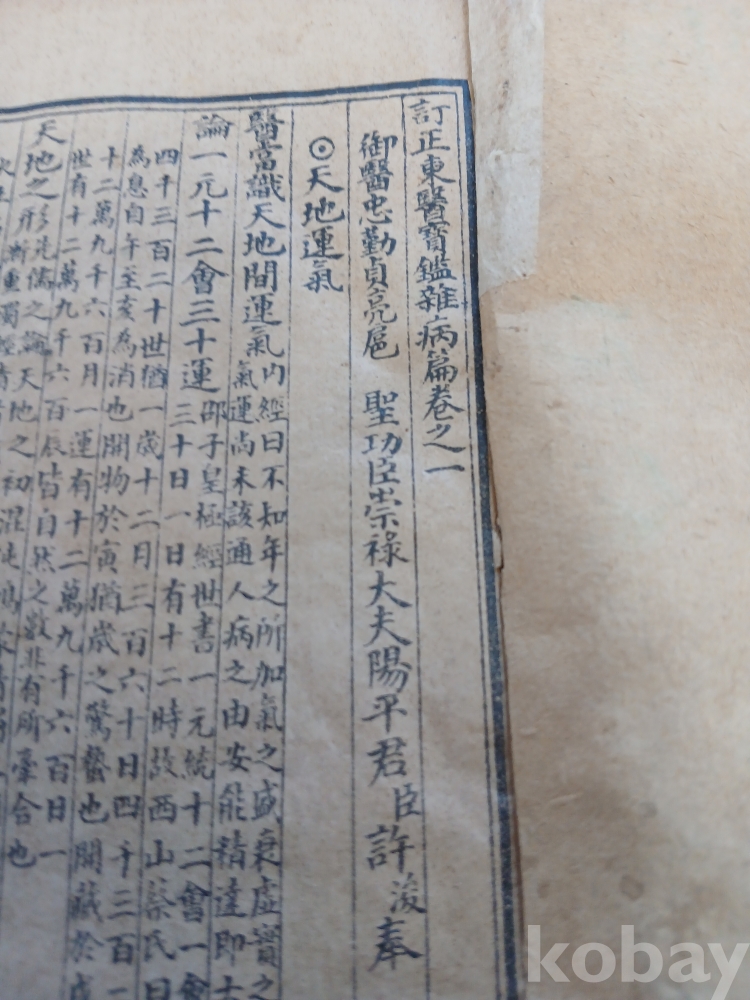 訂正東醫寶鑑雜病篇卷之一
御醫忠勤貞亮扈 聖功臣崇祿大夫陽平君臣許浚奉
⊙天地運氣
醫當識天地間運氣內經曰不知年之所加氣之盛衰虛實之
氣運尚未該通人病之由安能精達即古
論一元十二會三十運邵子皇極經世書一元統十二會一會
三十日一日有十二時故西山蔡氏曰
四千三百二十世猶一歲十二月三百六十日四千三百二
為息自午至亥為消也開物於寅猶歲之驚蟄也閉藏於戌
十二萬九千六百月一運有十二萬九千六百日一
世有十二萬九千六百辰皆自然之數非有所牽合也
天地之形先儒之論天地之初混沌鴻